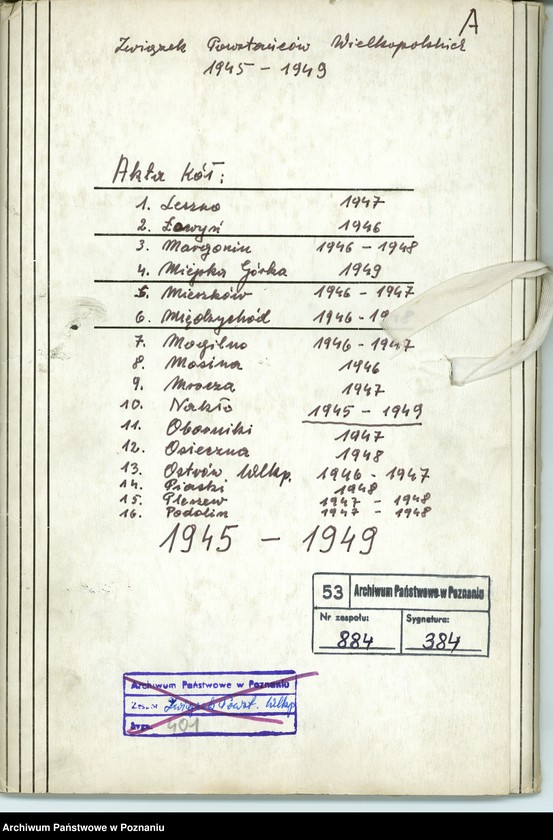 A
Związek Powstańców Wielkopolskich
1945 - 1949
Akta Kół:
1. Leszno 1947
2. Łowyń 1946
3. Margonin 1946 - 1948
4. Miejska Górka 1949
5. Mieszków 1946 - 1947
6. Międzychód 1946 - 1948
7. Mogilno 1946 - 1947
8. Mosina 1946
9. Mrocza 1947
10. Nakło 1945 - 1949
11. Oborniki 1947
12. Osieczna 1948
13. Ostrów Wlkp. 1946 - 1947
14. Piaski 1948
15. Pleszew 1947 - 1948
16. Podolin 1947 - 1948
1945 - 1949
53 Archiwum Państwowe w Poznaniu
Nr zespołu: Sygnatura:
884 384
Archiwum Państwowe w Poznaniu
Zespół Związek Powst. Wlkp
Sygn. 401
Archiwum Państwowe w Poznaniu